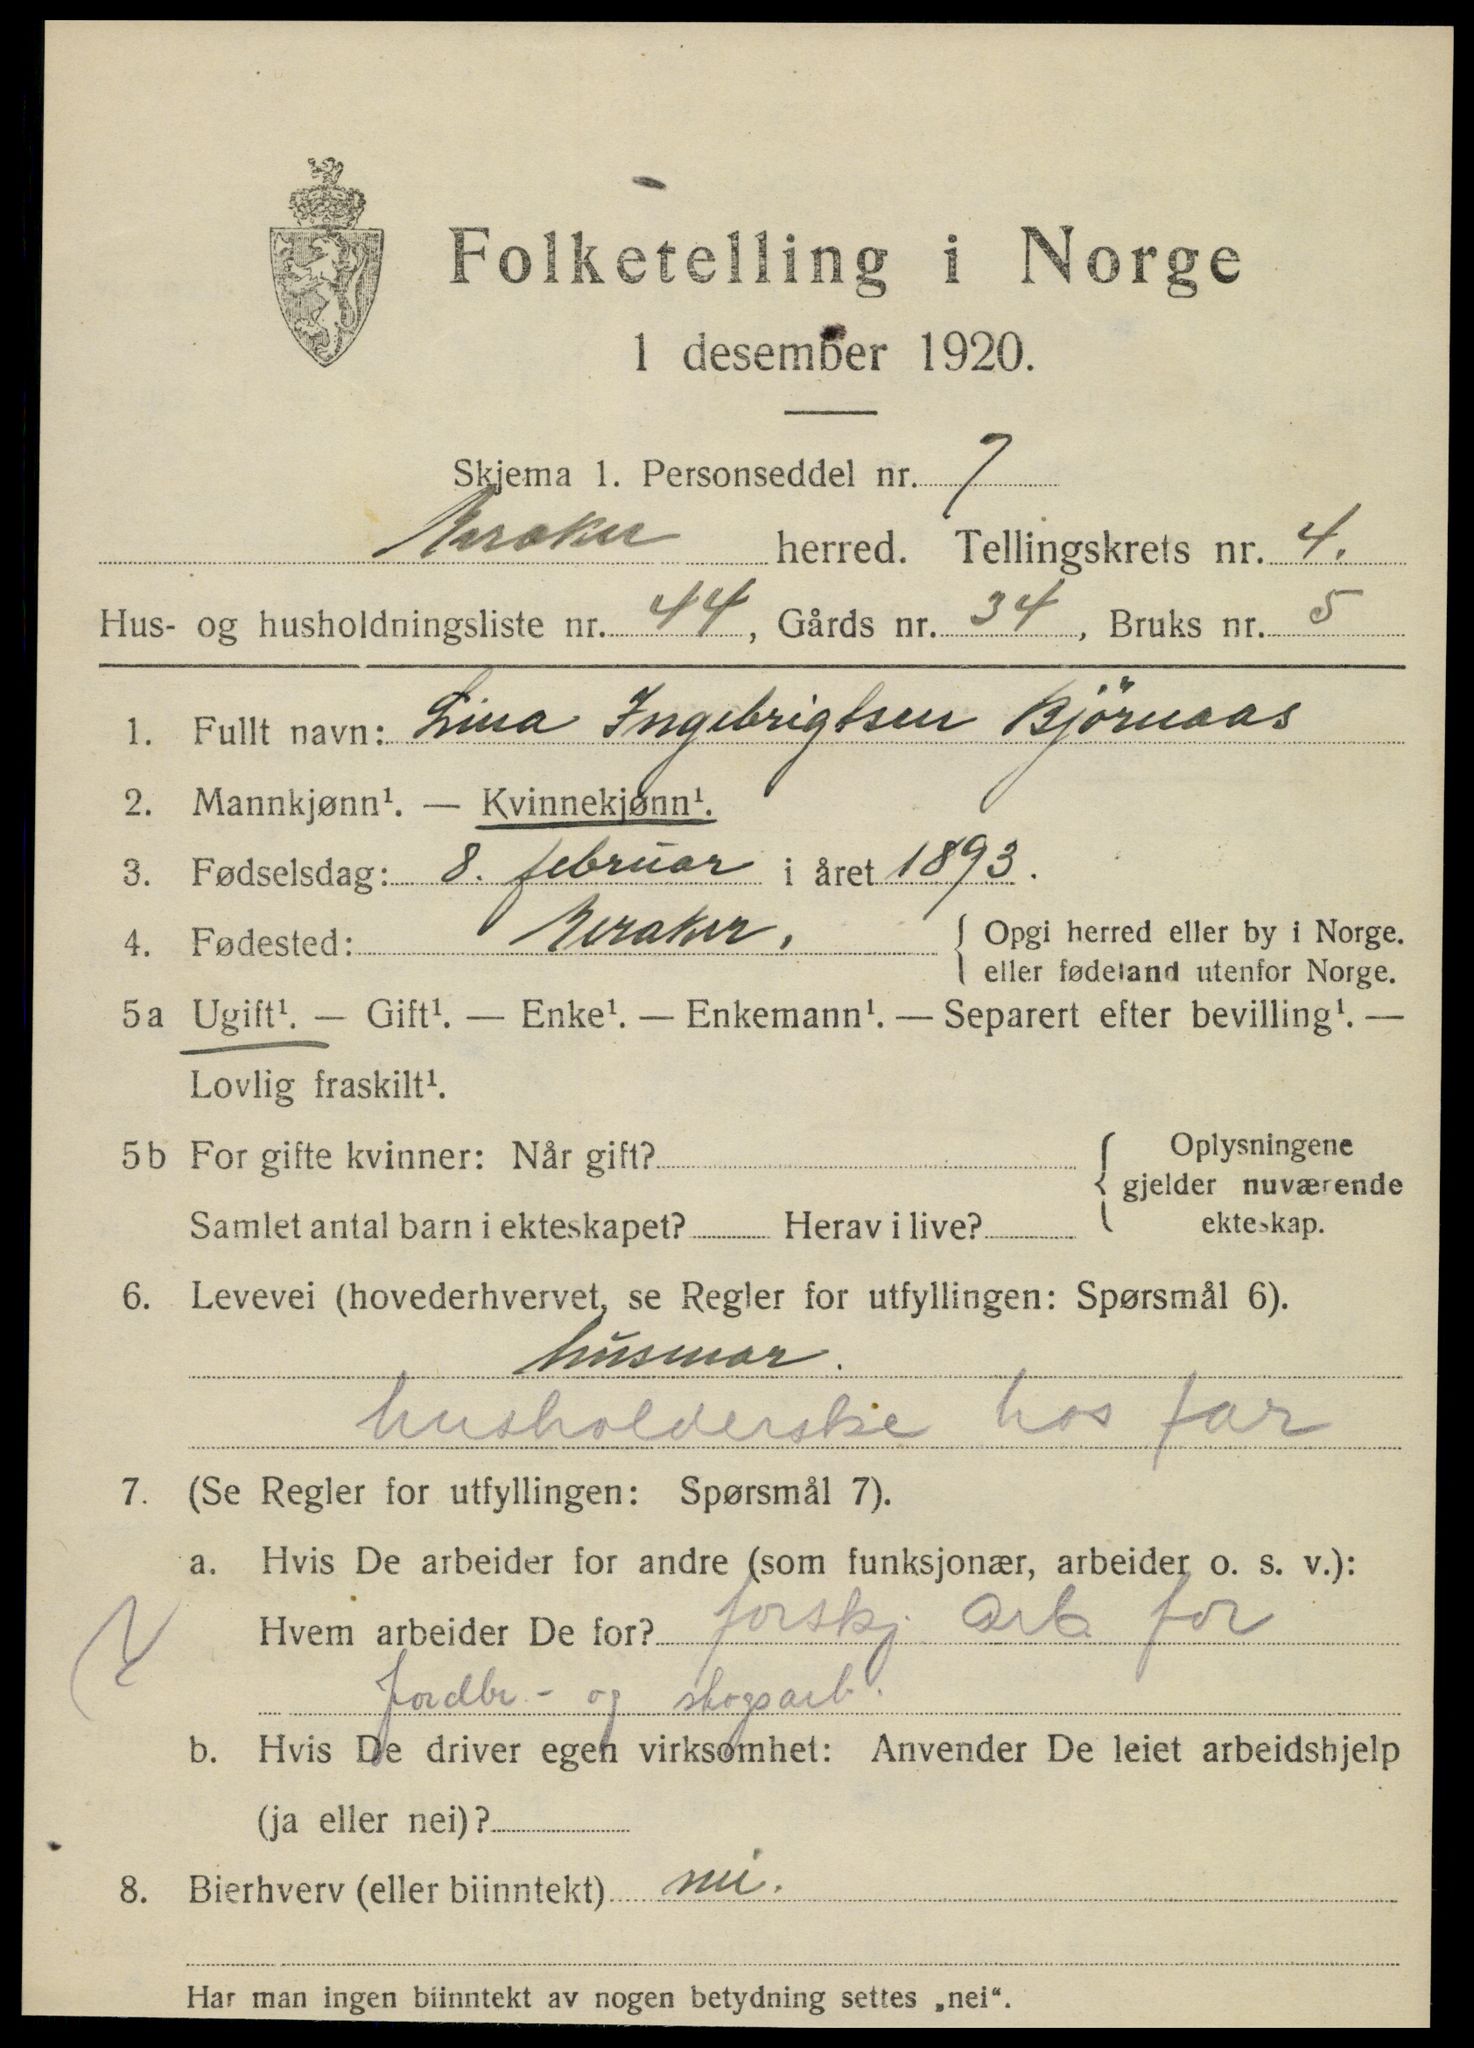 Folketelling i Norge
1 desember 1920.
Skjema 1. Personseddel nr. 7
Meraker herred. Tellingskrets nr. 4.
Hus- og husholdningsliste nr. 44, Gårds nr. 34, Bruks nr. 5
1. Fullt navn: Lina Ingebrigtsen Björnaas
2. Mannkjønn¹. — Kvinnekjønn¹.
3. Fødselsdag: 8. februar i året 1893.
4. Fødested: Meraker. { Opgi herred eller by i Norge.
eller fødeland utenfor Norge.
5a Ugift¹. — Gift¹. — Enke¹. — Enkemann¹. — Separert efter bevilling¹. —
Lovlig fraskilt¹.
5b For gifte kvinner: Når gift? { Oplysningene
gjelder nuværende
ekteskap.
Samlet antal barn i ekteskapet? Herav i live?
6. Levevei (hovederhvervet, se Regler for utfyllingen: Spørsmål 6).
husmor.
husholderske hos far
7. (Se Regler for utfyllingen: Spørsmål 7).
a. Hvis De arbeider for andre (som funksjonær, arbeider o. s. v.):
Hvem arbeider De for? forskj arb for
jordbr- og skogsarb.
b. Hvis De driver egen virksomhet: Anvender De leiet arbeidshjelp
(ja eller nei)?
8. Bierhverv (eller biinntekt) nei.
Har man ingen biinntekt av nogen betydning settes „nei“.